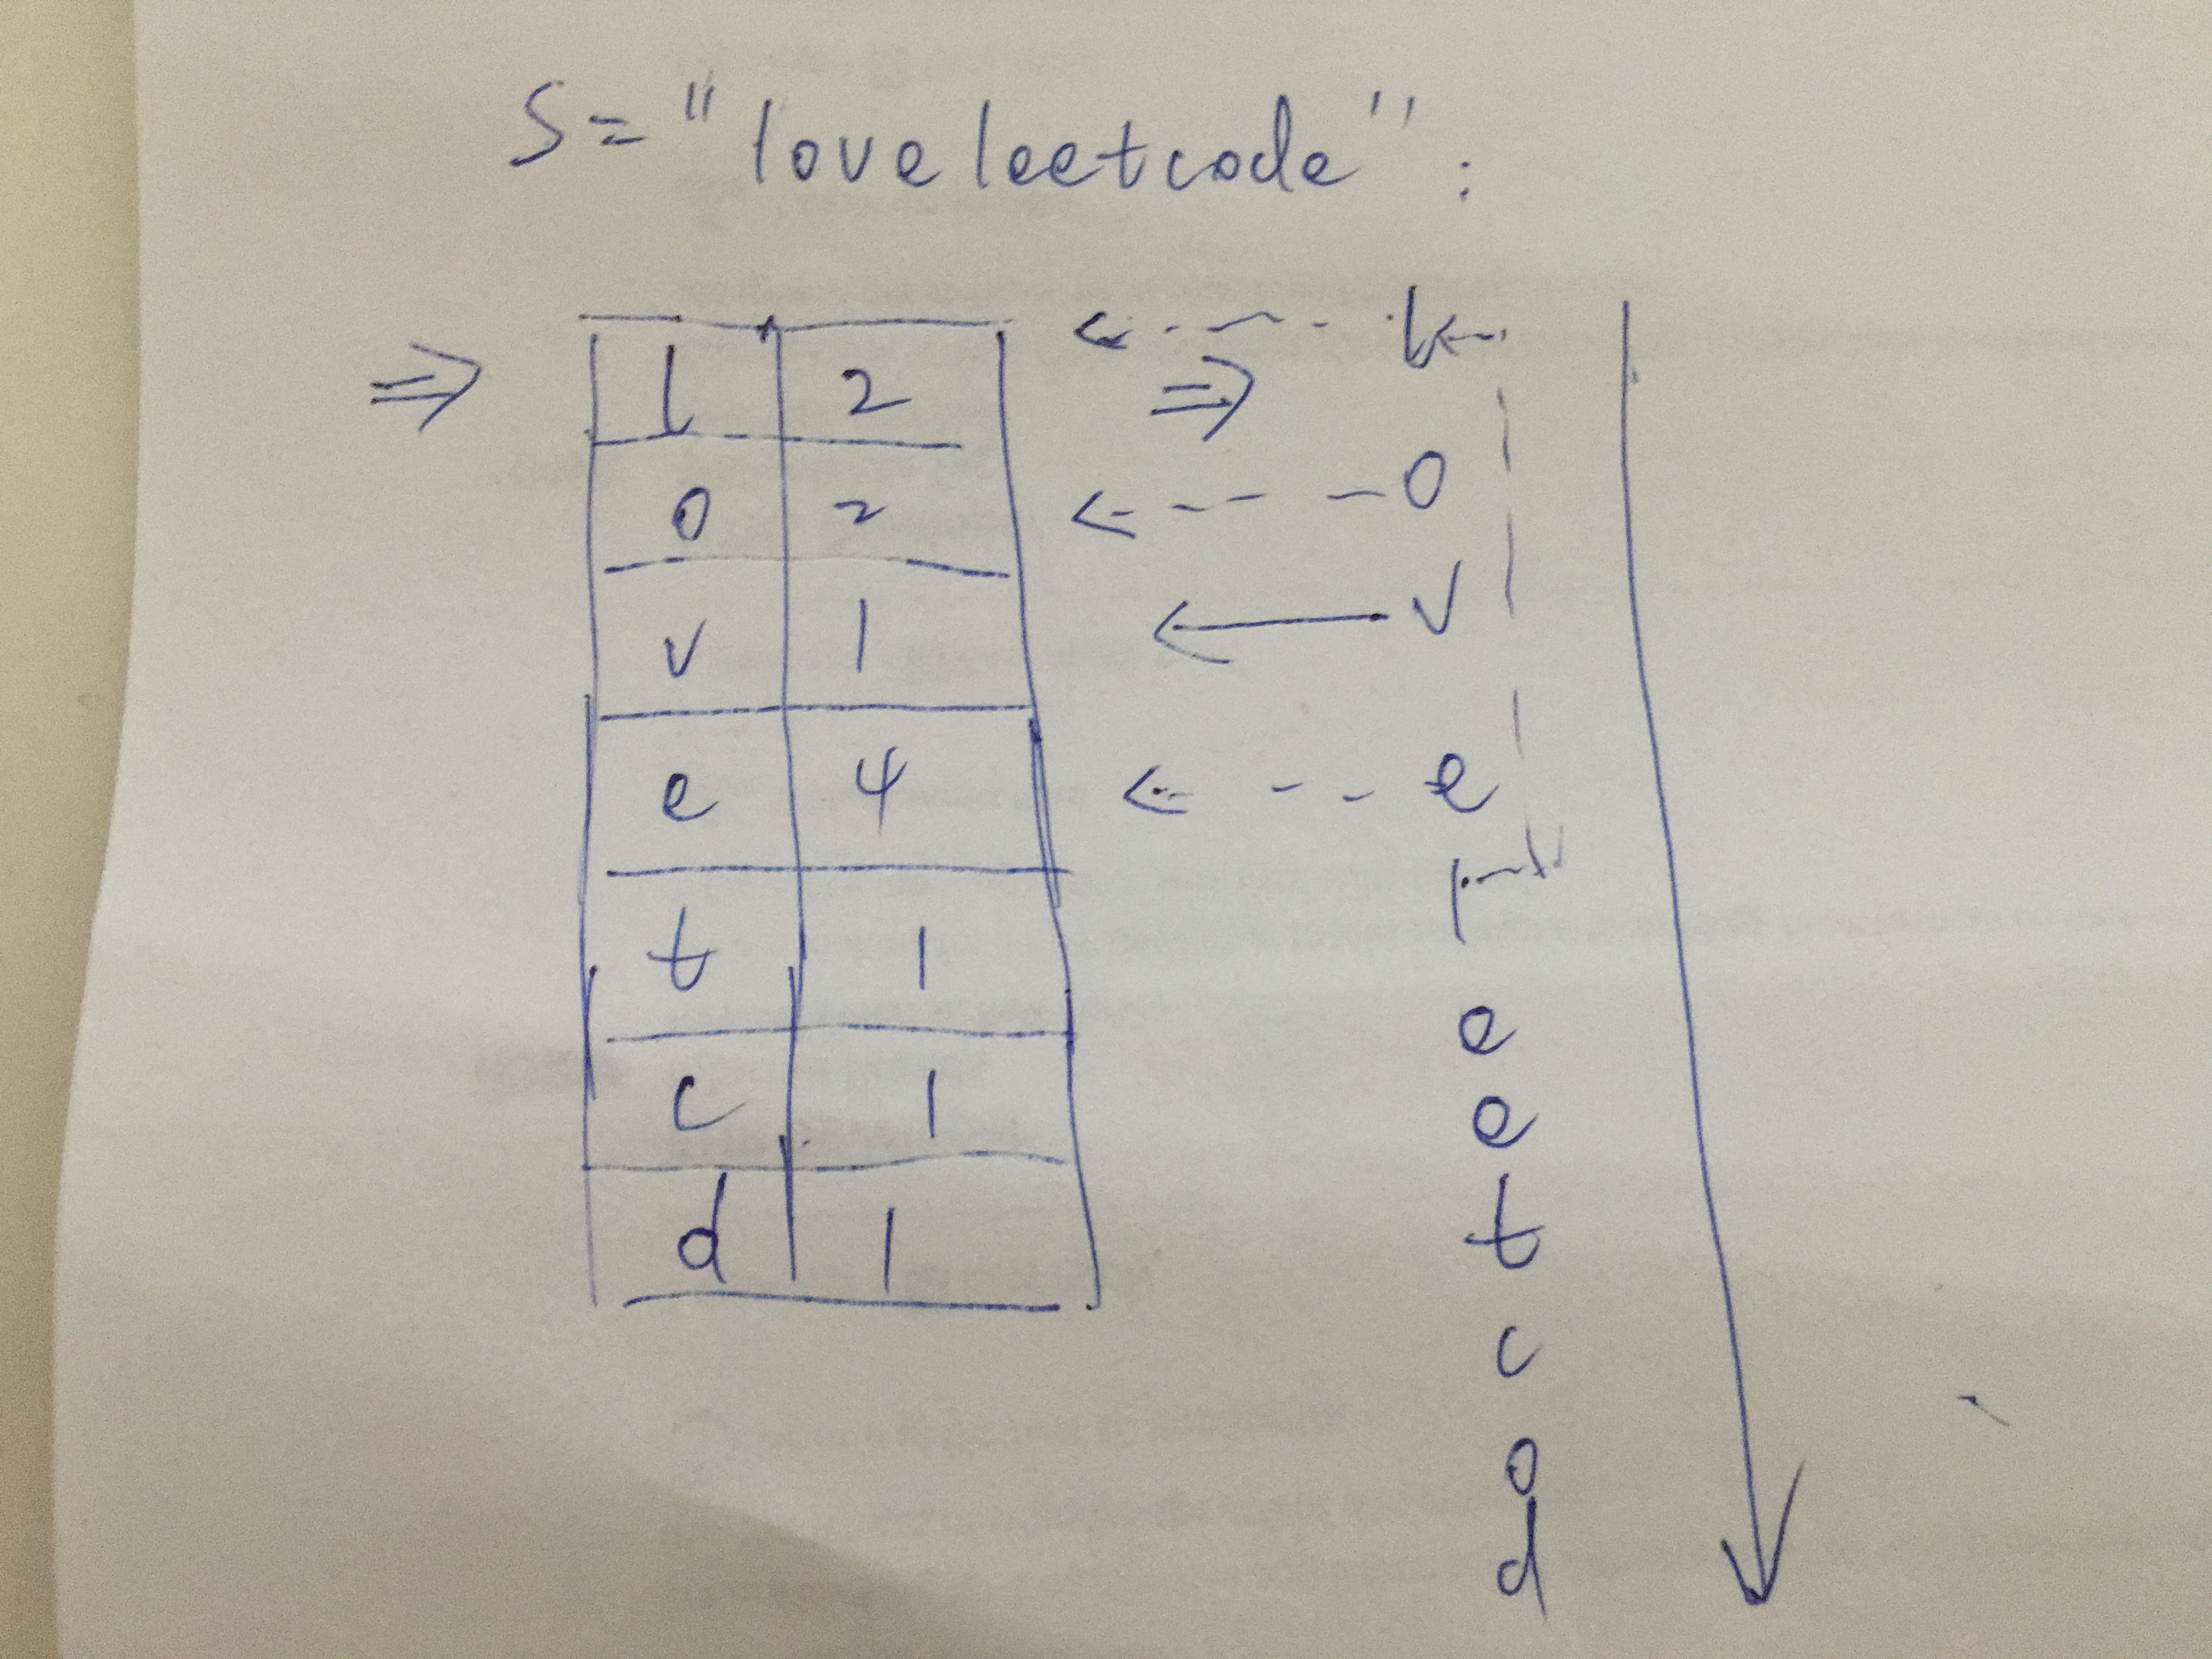 S = "loveleetcode" :
⇒
l 2
o 2
v 1
e 4
t 1
c 1
d 1
⇒
l
o
← v
e
l
e
e
t
c
o
d